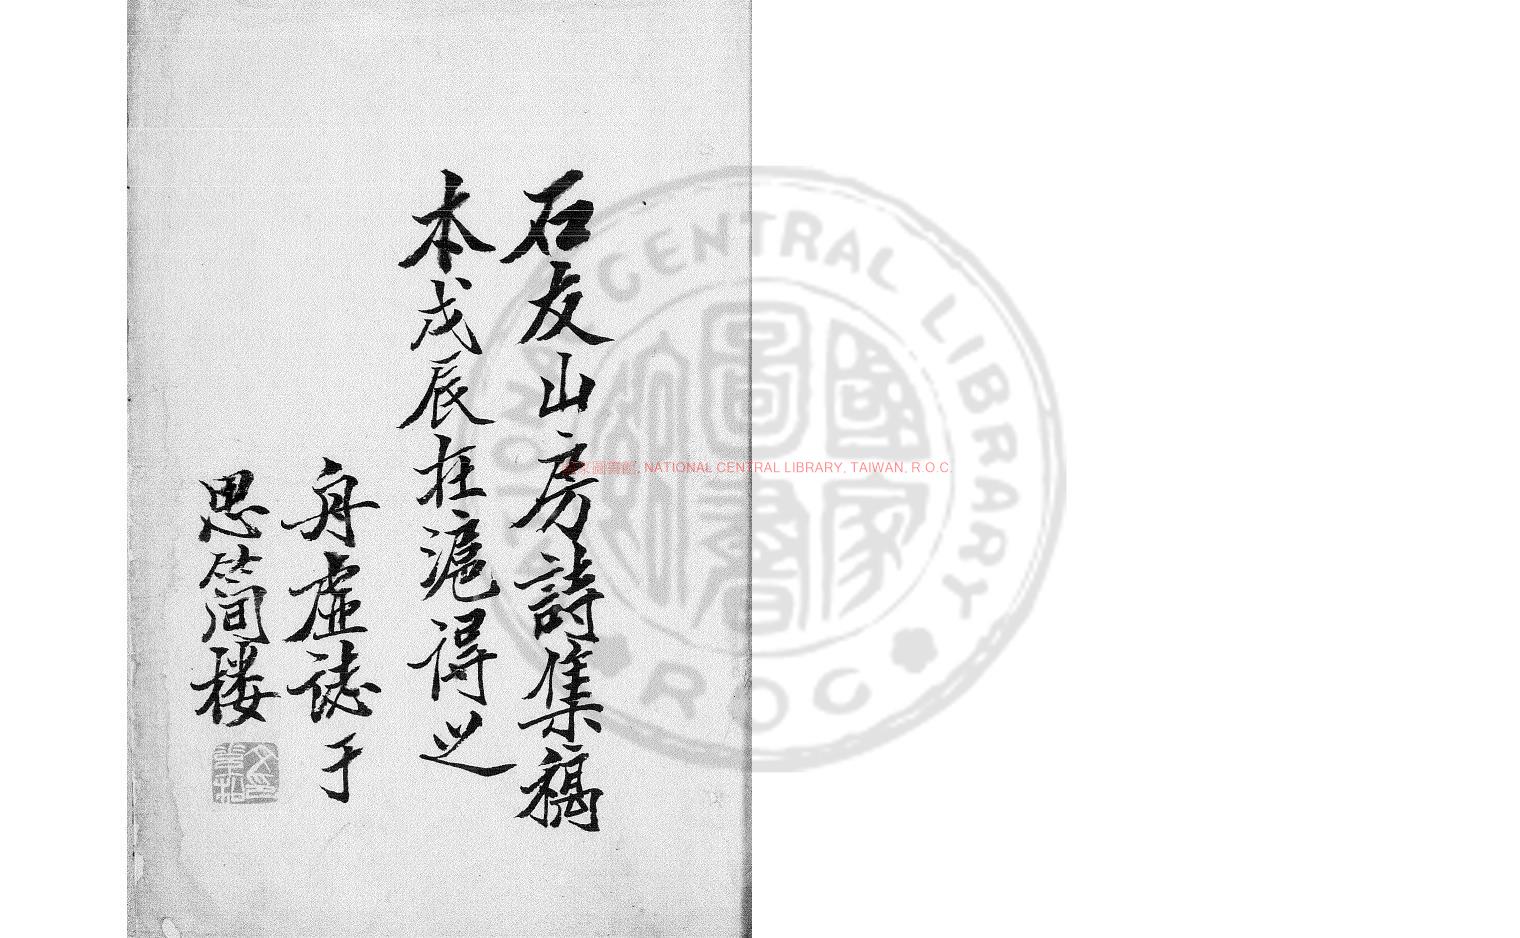 石友山房詩集稿
本戊辰在滬得之
舟虛誌于
思簡樓
國家圖書館, NATIONAL CENTRAL LIBRARY, TAIWAN, R.O.C.
NATIONAL CENTRAL LIBRARY
國家圖書館
ROC